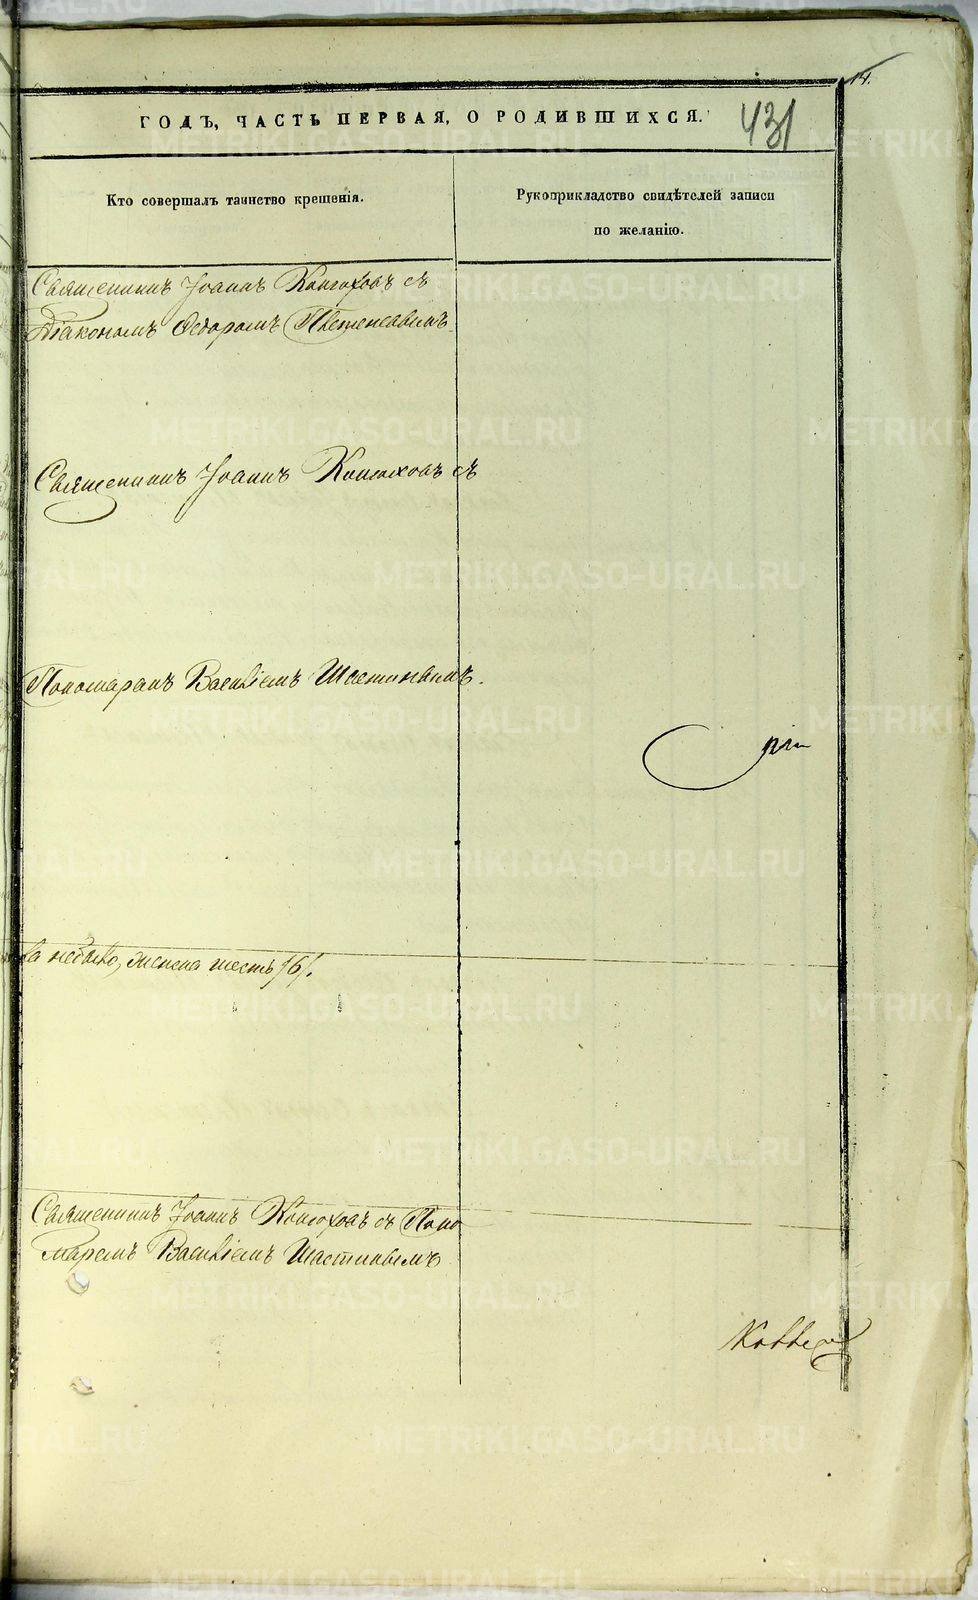 14.
ГОДЪ, ЧАСТЬ ПЕРВАЯ, О РОДИВШИХСЯ.
431
Кто совершалъ таинство крещенія.
Рукоприкладство свидѣтелей записи
по желанію.
Священникъ Іоаннъ Конюховъ съ
Діакономъ Ѳедоромъ
Священникъ Іоаннъ Конюховъ съ
Пономаремъ Василіемъ Шастиновымъ.
ка небыло, женска шесть /6/.
Священникъ Іоаннъ Конюховъ съ Поно
маремъ Василіемъ Шастиновымъ
METRIKI.GASO-URAL.RU